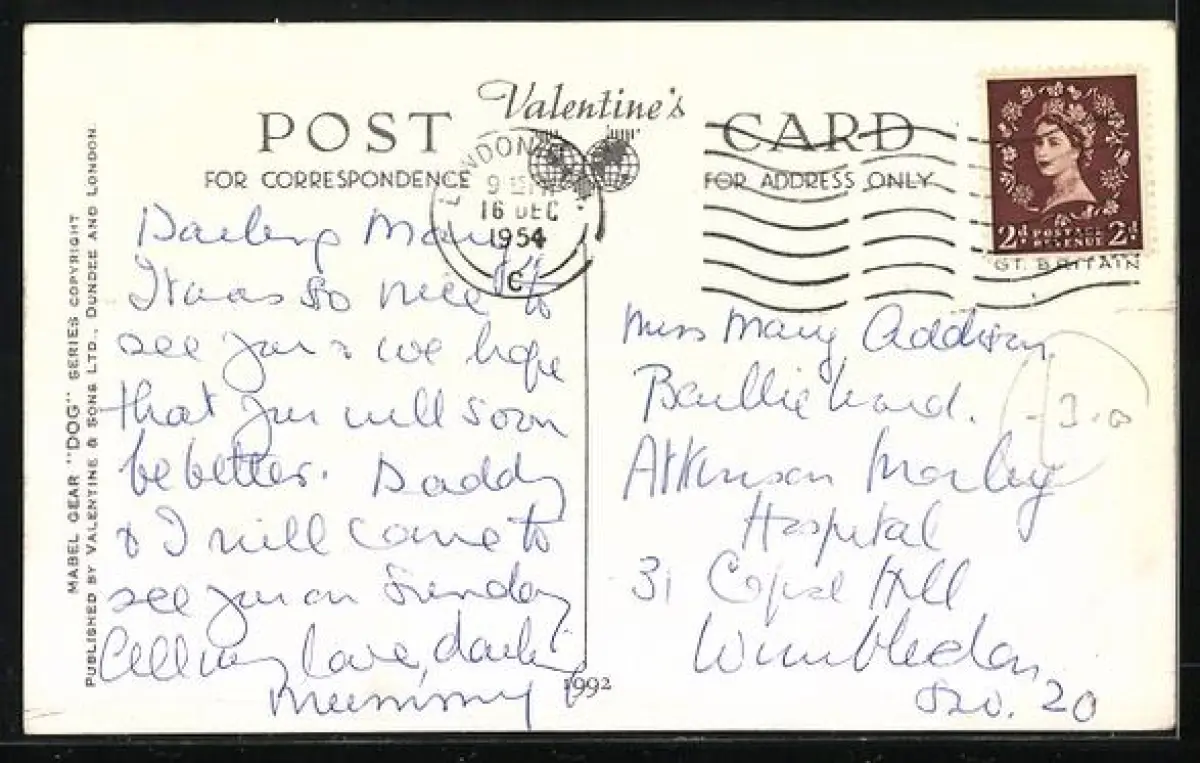 Valentine's
POST CARD
FOR CORRESPONDENCE
FOR ADDRESS ONLY
LONDON
9 15 PM
16 DEC
1954
C
2d POSTAGE REVENUE 2d
GT. BRITAIN
MABEL GEAR "DOG" SERIES COPYRIGHT
PUBLISHED BY VALENTINE & SONS LTD., DUNDEE AND LONDON.
Darling Mary
It was so nice to
see you & we hope
that you will soon
be better. Daddy
& I will come to
see you on Sunday
All my love, darling
Mummy
1992
Miss Mary Addison
Baillie Ward.
Atkinson Morley
Hospital
31 Copse Hill
Wimbledon
S.W. 20